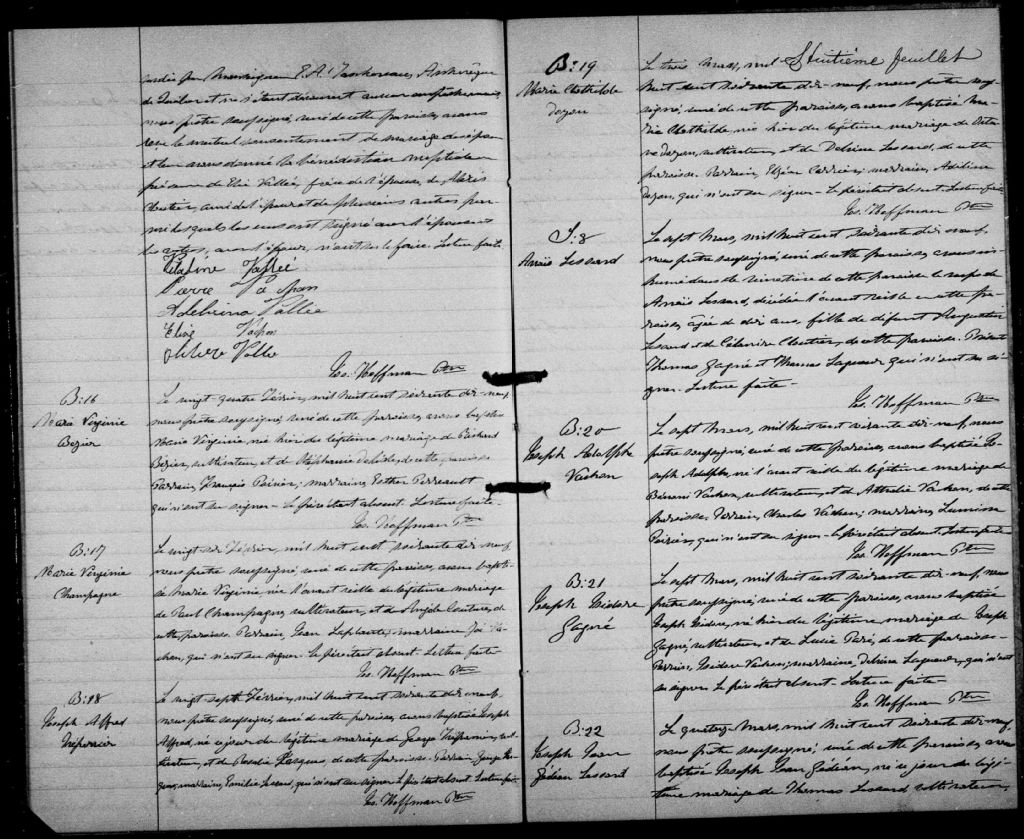 cordée par Monseigneur E. A. Taschereau, Archevêque
de Québec et ne s'étant découvert aucun empêchement,
nous prêtre soussigné, curé de cette paroisse, avons
reçu le mutuel consentement de mariage des époux
et leur avons donné la bénédiction nuptiale en
présence de Elie Vallée, frère de l'épouse, de Alexis
Cloutier, ami de l'époux et de plusieurs autres par-
mi lesquels les uns ont signé avec l'épouse
les autres, avec l'époux, n'ont su le faire. Lecture faite.
Vallée
Pierre
Adelvina Vallée
Elise
Vallée
Jos. Hoffman Ptre
B:16
Marie Virginie
Bezier
Le vingt quatre Février, mil huit cent soixante dix neuf,
nous prêtre soussigné, curé de cette paroisse, avons baptisé
Marie Virginie, née hier du légitime mariage de Richard
Bézier, cultivateur, et de Stéphanie Delisle, de cette paroisse
Parrain, François Poirier; marraine, Esther Perreault
qui n'ont su signer. Le père était absent. Lecture faite.
Jos. Hoffman Ptre
B:17
Marie Virginie
Champagne
Le vingt six Février, mil huit cent soixante dix neuf,
nous prêtre soussigné, curé de cette paroisse, avons bapti-
sé Marie Virginie, née l'avant veille du légitime mariage
de Paul Champagne, cultivateur, et de Angèle Couture, de
cette paroisse. Parrain, Jean Laplante; marraine
qui n'ont su signer. Le père était absent. Lecture faite
Jos. Hoffman Ptre
B:18
Joseph Alfred
Thépanier
Le vingt sept Février, mil huit cent soixante dix neuf,
nous prêtre soussigné, curé de cette paroisse, avons baptisé Joseph
Alfred, né ce jour du légitime mariage de George Trépanier, cul-
tivateur, et de Rosalie de cette paroisse. Parrain, George
marraine, Emilie Lessard, qui n'ont su signer. Le père était absent. Lecture faite
Jos. Hoffman Ptre
Huitième feuillet
B:19
Marie Clothilde
Doyon
Le trois Mars, mil
huit cent soixante dix-neuf, nous prêtre sous-
signé, curé de cette paroisse, avons baptisé Ma-
rie Clothilde, née hier du légitime mariage de Octa-
ve Doyon, cultivateur, et de Delvina Lessard, de cette
paroisse. Parrain, Elzéar Carrier; marraine, Adeline
Doyon, qui n'ont su signer. Le père était absent. Lecture faite.
Jos. Hoffman Ptre
S:8
Anaïs Lessard
Le sept Mars, mil huit cent soixante dix neuf,
nous prêtre soussigné, curé de cette paroisse, avons in-
humé dans le cimetière de cette paroisse le corps de
Anaïs Lessard, décédée l'avant veille en cette pa-
roisse, âgée de dix ans, fille de défunt Augustin
Lessard et de Célanire Cloutier, de cette paroisse. Présents
Thomas Gagné et Thomas Lagueux qui n'ont su si-
gner. Lecture faite.
Jos. Hoffman Ptre
B:20
Joseph Adolphe
Vachon
Le sept Mars, mil huit cent soixante dix-neuf, nous
prêtre soussigné, curé de cette paroisse, avons baptisé Jo-
seph Adolphe, né l'avant veille du légitime mariage de
Vachon, cultivateur, et de Athalie Vachon, de cette
paroisse. Parrain, Charles Vachon; marraine,
Poirier, qui n'ont su signer. Le père était absent. Lecture faite
Jos. Hoffman Ptre
B:21
Joseph Isidore
Gagné
Le sept Mars, mil huit cent soixante dix-neuf, nous
prêtre soussigné, curé de cette paroisse, avons baptisé
Joseph Isidore, né hier du légitime mariage de Joseph
Gagné, cultivateur, et de Lucie Paré, de cette paroisse.
Parrain, Isidore Vachon; marraine, Delvina Lagueux, qui n'ont
su signer. Le père était absent. Lecture faite
Jos. Hoffman Ptre
B:22
Joseph Jean
Gédéon Lessard
Le quatorze Mars, mil huit cent soixante dix-neuf
nous prêtre soussigné, curé de cette paroisse, avons
baptisé Joseph Jean Gédéon, né ce jour du légi-
time mariage de Thomas Lessard cultivateur,